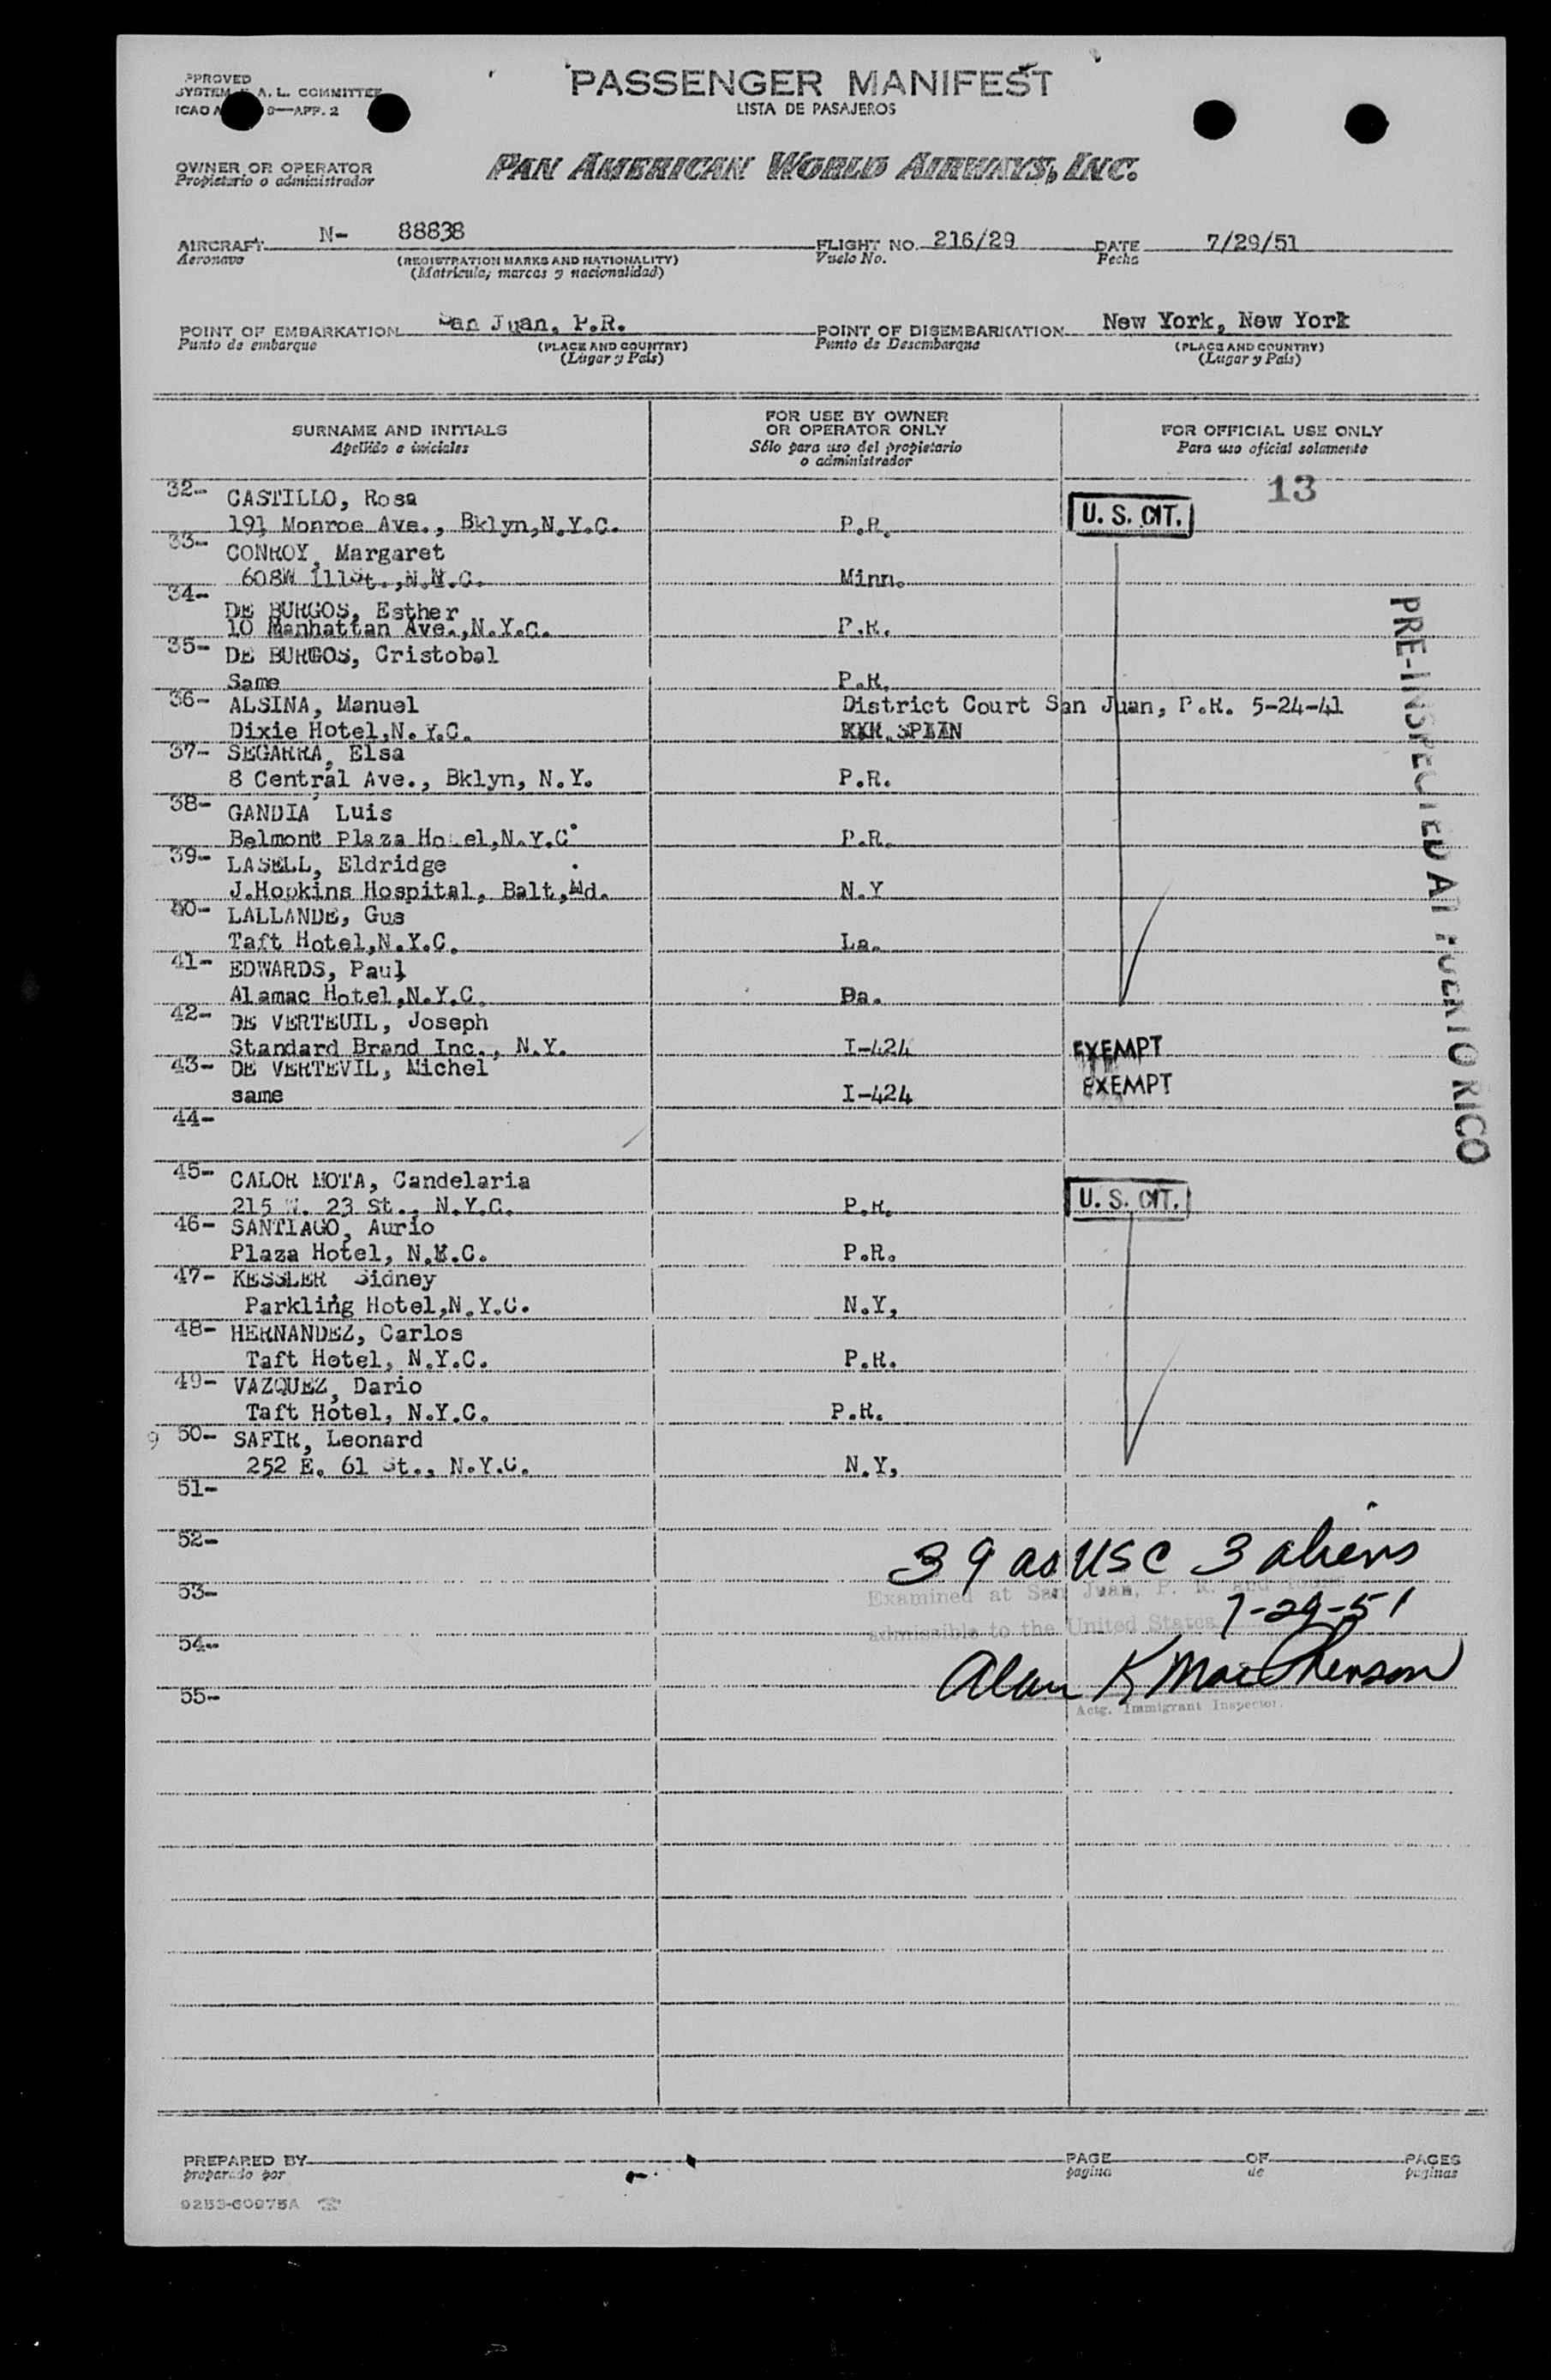 PASSENGER MANIFEST
LISTA DE PASAJEROS
PPROVED
SYSTEM A. L. COMMITTEE
ICAO A 9—APP. 2
OWNER OR OPERATOR
Propietario o administrador
PAN AMERICAN WORLD AIRWAYS, INC.
AIRCRAFT N- 88838 FLIGHT NO. 216/29 DATE 7/29/51
Aeronave (REGISTRATION MARKS AND NATIONALITY) Vuelo No. Fecha
(Matricula, marcas y nacionalidad)
POINT OF EMBARKATION San Juan, P.R. POINT OF DISEMBARKATION New York, New York
Punto de embarque (PLACE AND COUNTRY) Punto de Desembarque (PLACE AND COUNTRY)
(Lugar y País) (Lugar y País)
SURNAME AND INITIALS FOR USE BY OWNER OR OPERATOR ONLY FOR OFFICIAL USE ONLY
Apellido e iniciales Sólo para uso del propietario o administrador Para uso oficial solamente
13
32- CASTILLO, Rosa
191 Monroe Ave., Bklyn,N.Y.C. P.R. U. S. CIT.
33- CONROY, Margaret
608W 111St.,N.Y.C. Minn.
34- DE BURGOS, Esther
10 Manhattan Ave.,N.Y.C. P.R.
35- DE BURGOS, Cristobal
Same P.R.
36- ALSINA, Manuel District Court San Juan, P.R. 5-24-41
Dixie Hotel,N.Y.C. SPAIN
37- SEGARRA, Elsa
8 Central Ave., Bklyn, N.Y. P.R.
38- GANDIA, Luis
Belmont Plaza Hotel,N.Y.C. P.R.
39- LASELL, Eldridge
J.Hopkins Hospital, Balt,Md. N.Y
40- LALLANDE, Gus
Taft Hotel,N.Y.C. La.
41- EDWARDS, Paul
Alamac Hotel,N.Y.C. Pa.
42- DE VERTEUIL, Joseph
Standard Brand Inc., N.Y. I-424 EXEMPT
43- DE VERTEVIL, Michel
same I-424 EXEMPT
44-
45- CALOR MOTA, Candelaria
215 W. 23 St., N.Y.C. P.R. U. S. CIT.
46- SANTIAGO, Aurio
Plaza Hotel, N.Y.C. P.R.
47- KESSLER, Sidney
Parkling Hotel,N.Y.C. N.Y,
48- HERNANDEZ, Carlos
Taft Hotel, N.Y.C. P.R.
49- VAZQUEZ, Dario
Taft Hotel, N.Y.C. P.R.
9 50- SAFIR, Leonard
252 E. 61 St., N.Y.C. N.Y,
51-
52-
39 as USC 3 aliens
53-
Examined at San Juan, P. R. and found
7-29-51
admissible to the United States
54-
Alan K MacPherson
55-
Actg. Immigrant Inspector.
PRE-INSPECTED AT PUERTO RICO
PREPARED BY PAGE OF PAGES
preparado por pagina de paginas
9253-60975A